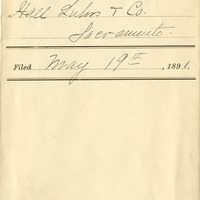 Hall Luhrs & Co.
Sacramento.
Filed May 19th, 1891.